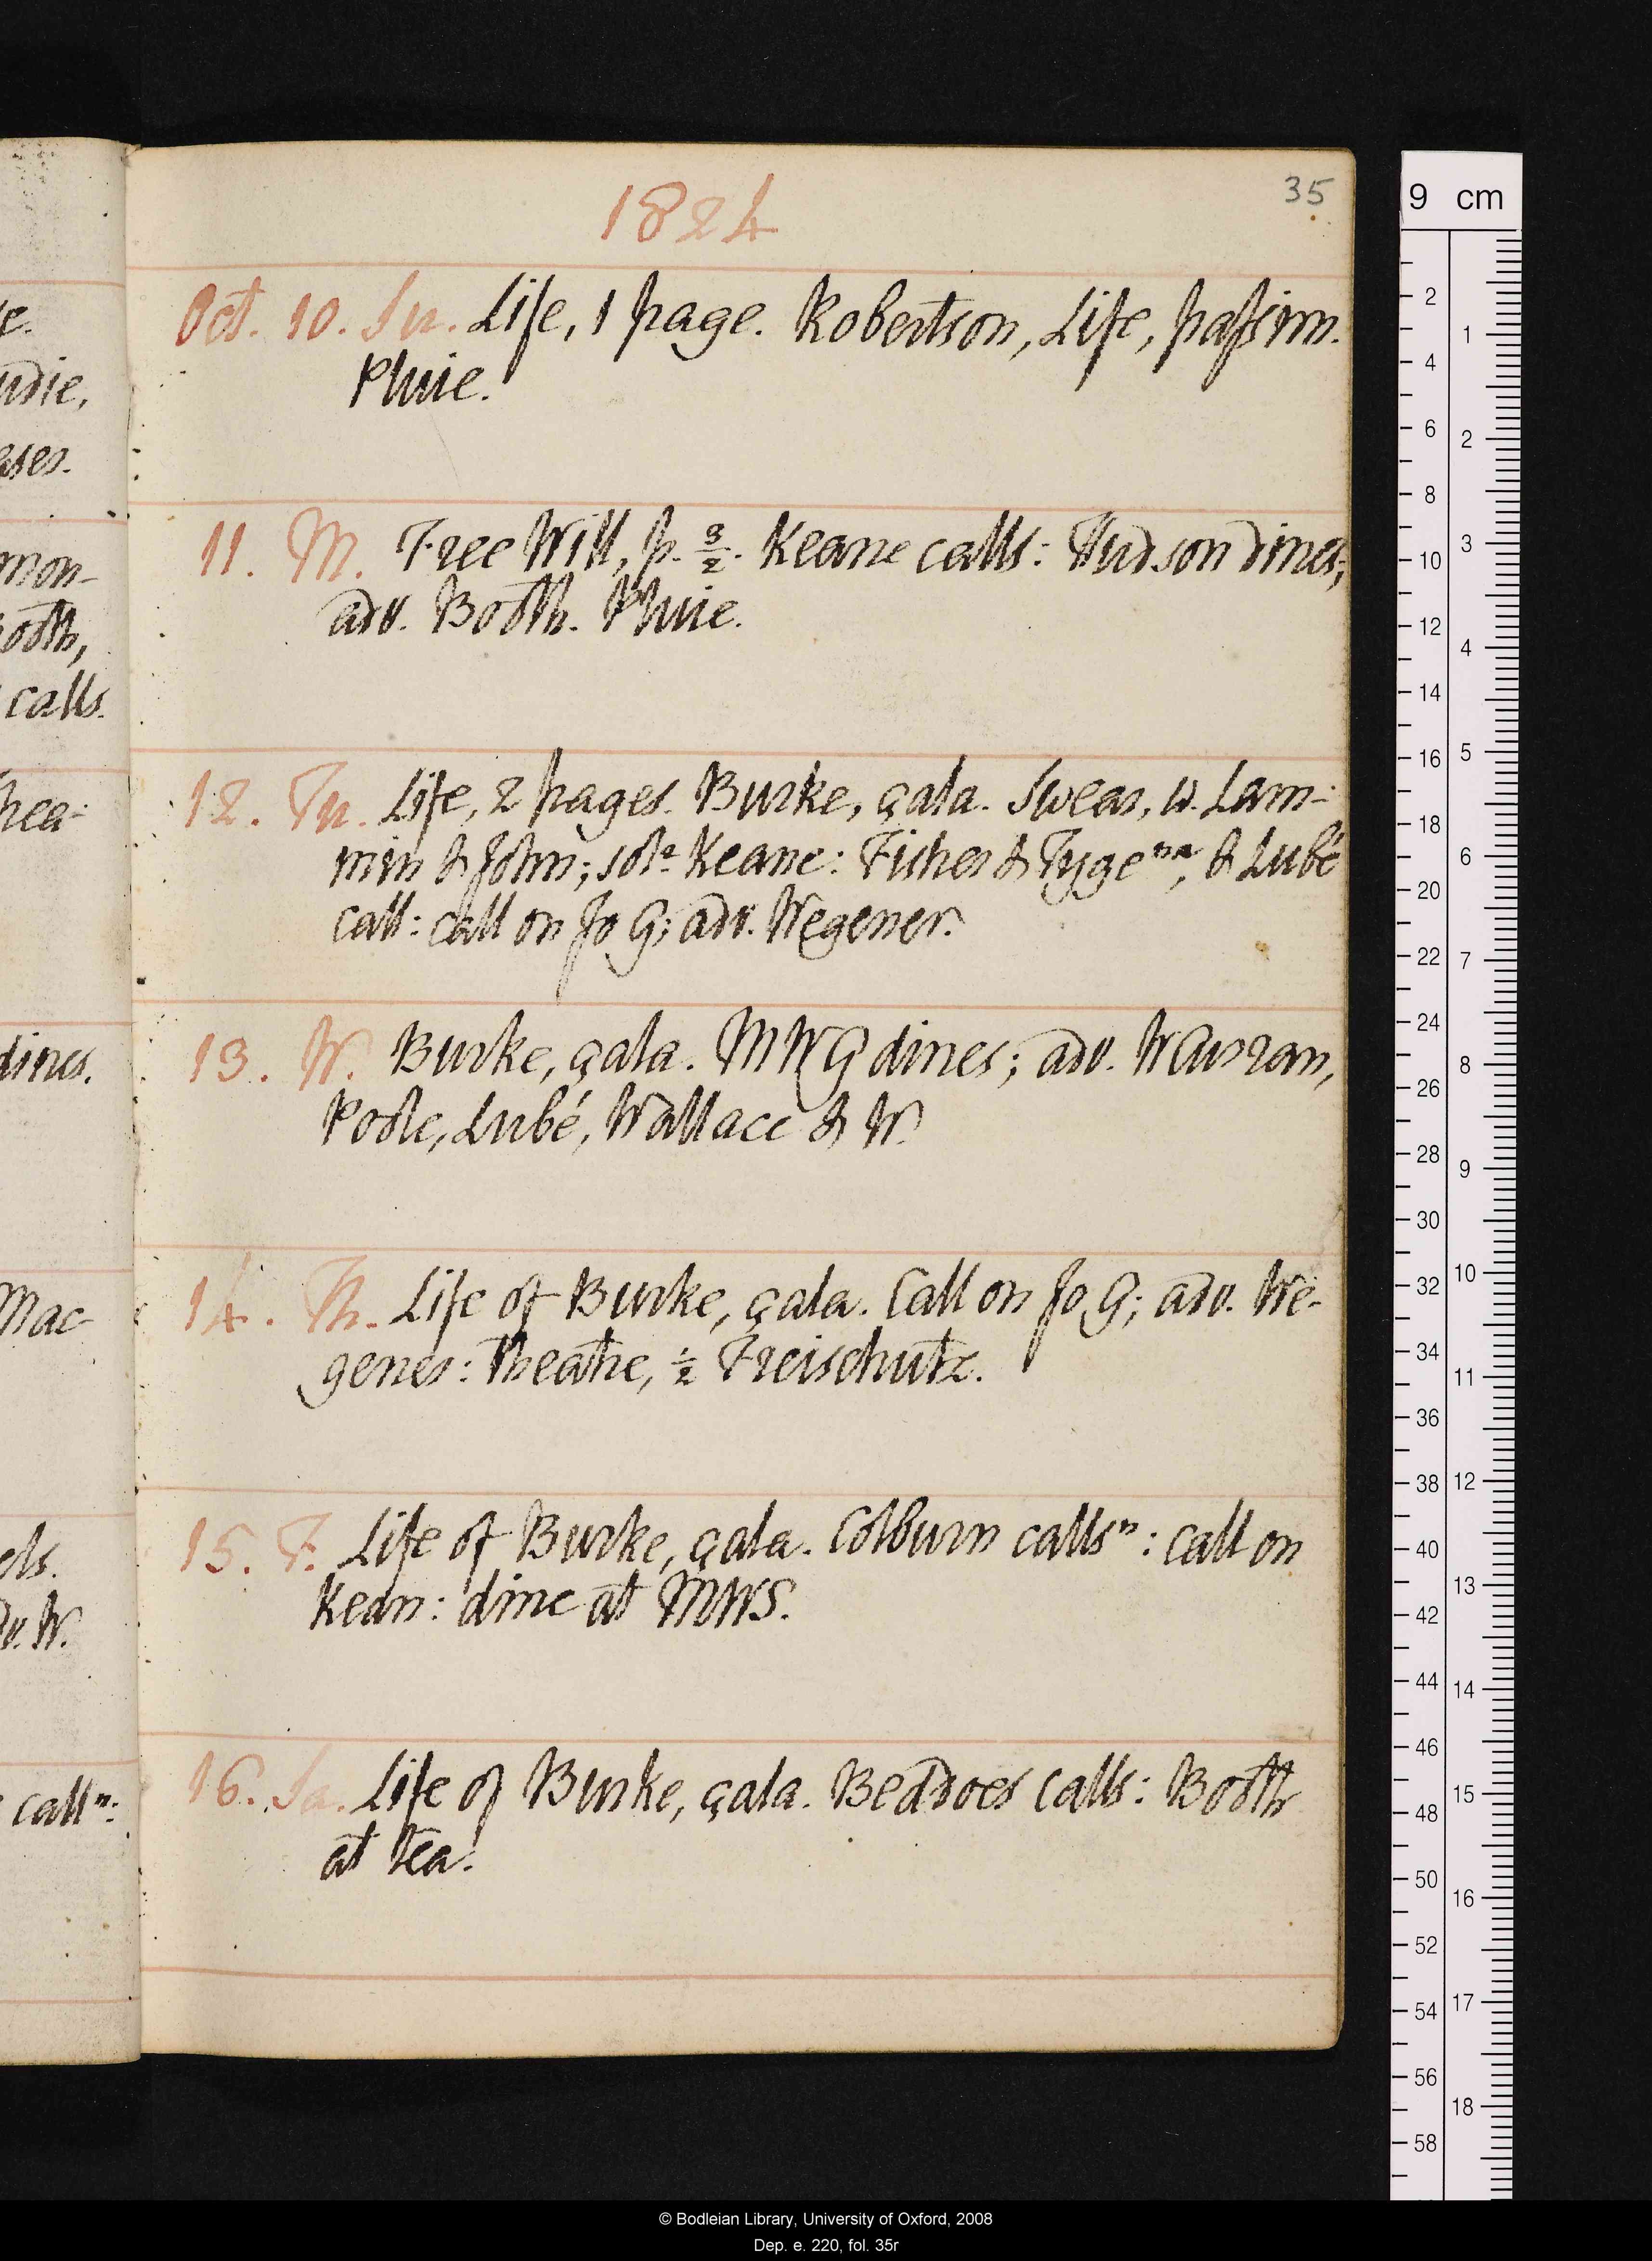 1824
35
Oct. 10. Su. Life, 1 page. Robertson, Life, passim.
Pluie.
11. M. Free Will, p. 3/2. Keane calls: Hudson dines;
adv. Booth. Pluie.
12. Tu. Life, 2 pages. Burke, çala. Swear, w. Lam-
min & John; sola Keane: Fisher & Tyge na, & Lubé
call: call on Jo G; adv. Wegener.
13. W. Burke, çala. MWG dines; adv.
Poole, Lubé, Wallace & W.
14. Th. Life of Burke, çala. Call on Jo G; adv. We-
gener: Theatre, ½ Freischutz.
15. F. Life of Burke, çala. Colburn calls n: call on
Kean: dine at MWS.
16. Sa. Life of Burke, çala. Beddoes calls: Booth
at tea.
e.
udie,
ases.
mon-
ooth,
calls.
hea-
dines.
Mac-
els.
v. W.
call n:
9 cm
2
4
6
8
10
12
14
16
18
20
22
24
26
28
30
32
34
36
38
40
42
44
46
48
50
52
54
56
58
1
2
3
4
5
6
7
8
9
10
11
12
13
14
15
16
17
18
© Bodleian Library, University of Oxford, 2008
Dep. e. 220, fol. 35r